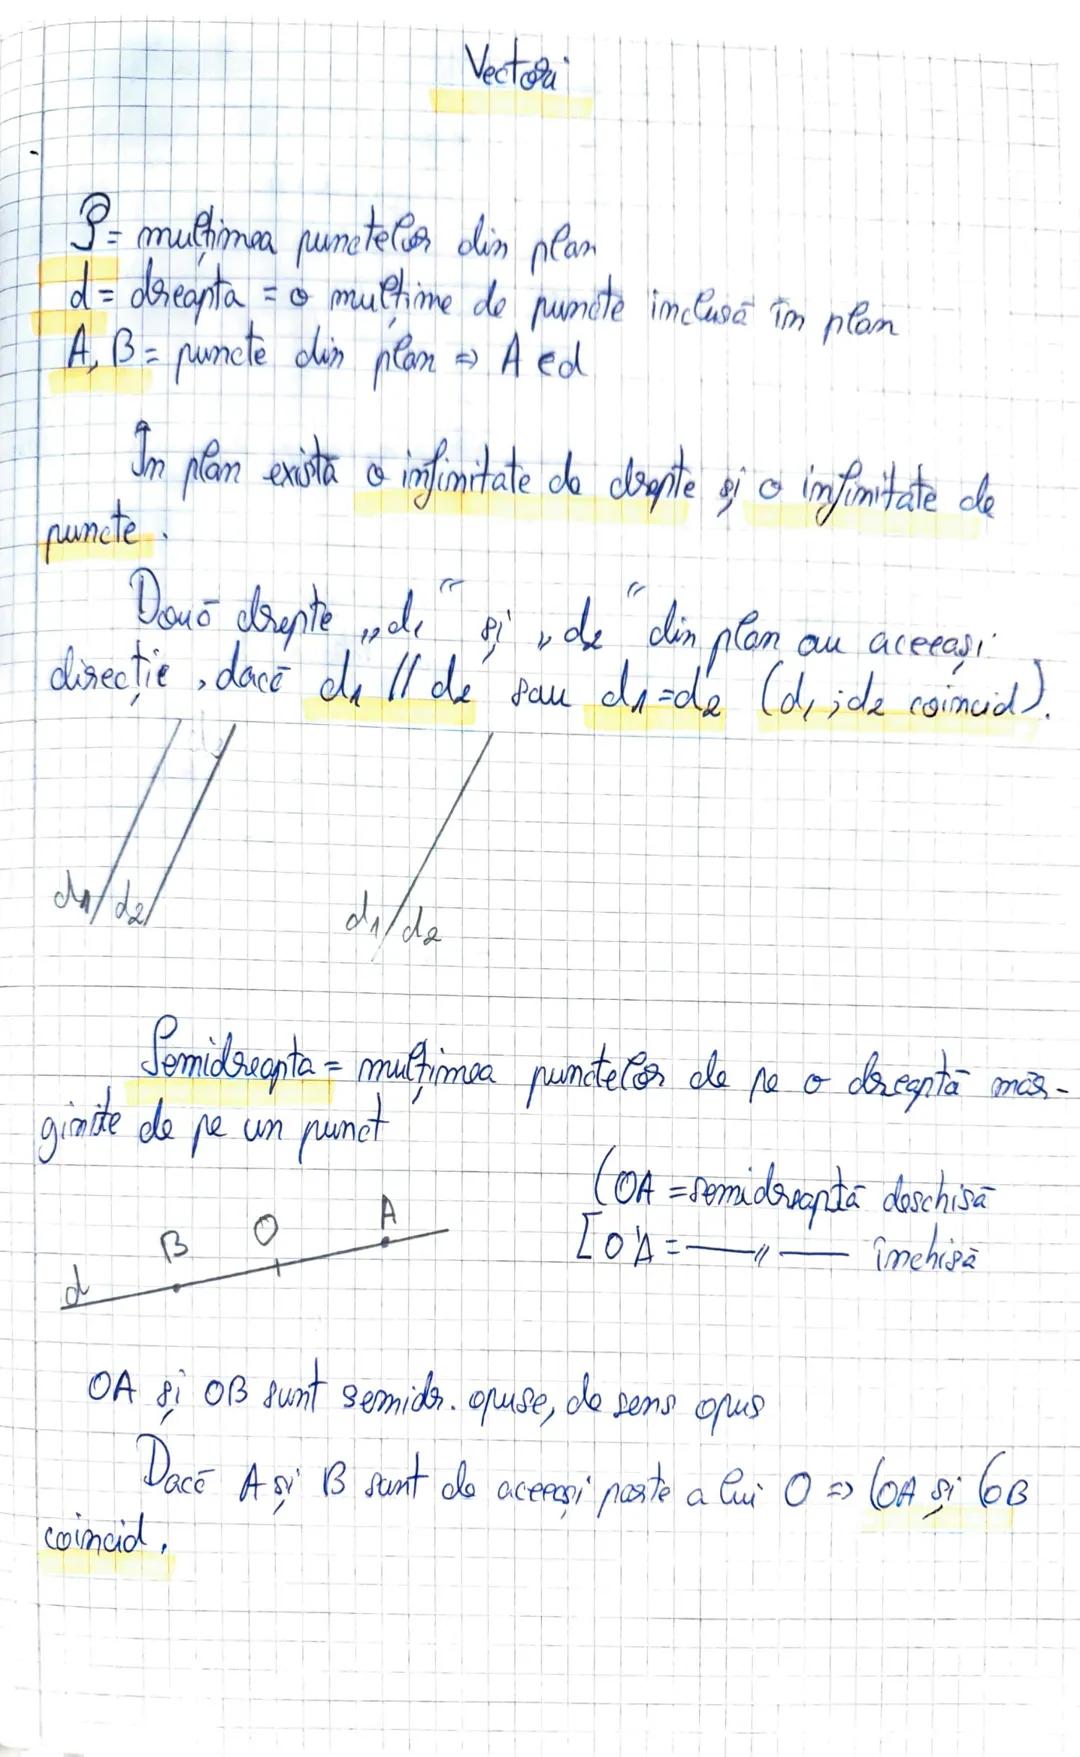 Vectori
P = mulțimea punctelor din plan
d = dreapta = o mulțime de puncte inclusă în plan
A, B = puncte din plan => A ∈ d
În plan există o infinitate de drepte și o infinitate de
puncte.
Două drepte „d1" și „d2" din plan au aceeași
direcție, dacă d1 // d2 sau d1=d2 (d1; d2 coincid).
d1 d2 d1 d2
Semidreapta = mulțimea punctelor de pe o dreaptă măr-
ginite de pe un punct
(OA = semidreaptă deschisă
[OA = —〃— închisă
d B O A
OA și OB sunt semidr. opuse, de sens opus
Dacă A și B sunt de aceeași parte a lui O => (OA și (OB
coincid.